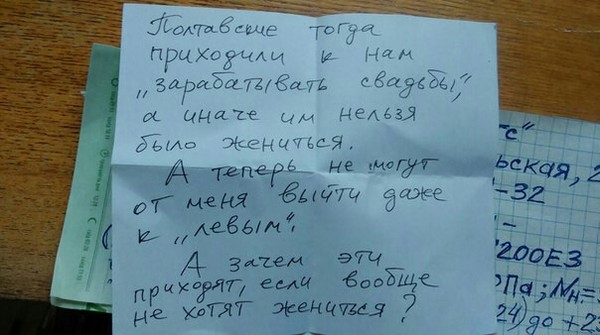 Полтавские тогда
приходили к нам
„зарабатывать свадьбы",
а иначе им нельзя
было жениться.
А теперь не могут
от меня выйти даже
к „левым".
А зачем эти
приходят, если вообще
не хотят жениться?
с"
ьская, 2
-32
200ЕЗ
Па; Nн=
24) до +2